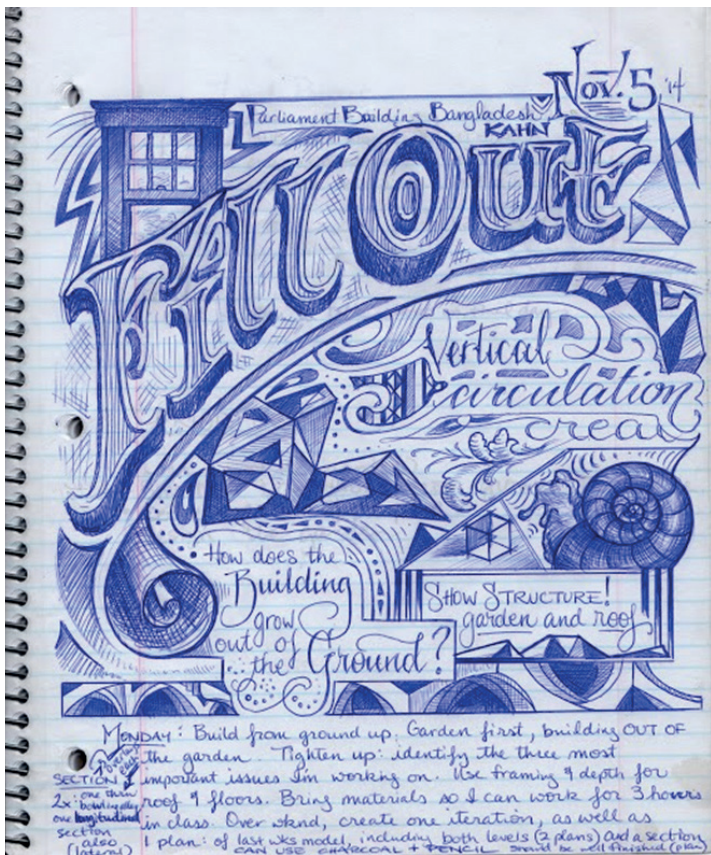 Nov. 5 '14
Parliament Building Bangladesh
KAHN
Fill Out
Vertical
circulation
crea
How does the
Building
grow
out of
the Ground?
SHOW STRUCTURE!
garden and roof
MONDAY: Build from ground up. Garden first, building OUT OF
the garden. Tighten up: identify the three most
important issues Im working on. Use framing & depth for
roof & floors. Bring materials so I can work for 3 hours
in class. Over wknd, create one iteration, as well as
1 plan: of last wks model, including both levels (2 plans) and a section
CAN USE CHARCOAL + PENCIL should be well finished (plan)
SECTION
2x: one thru
one longitudinal
section
(also